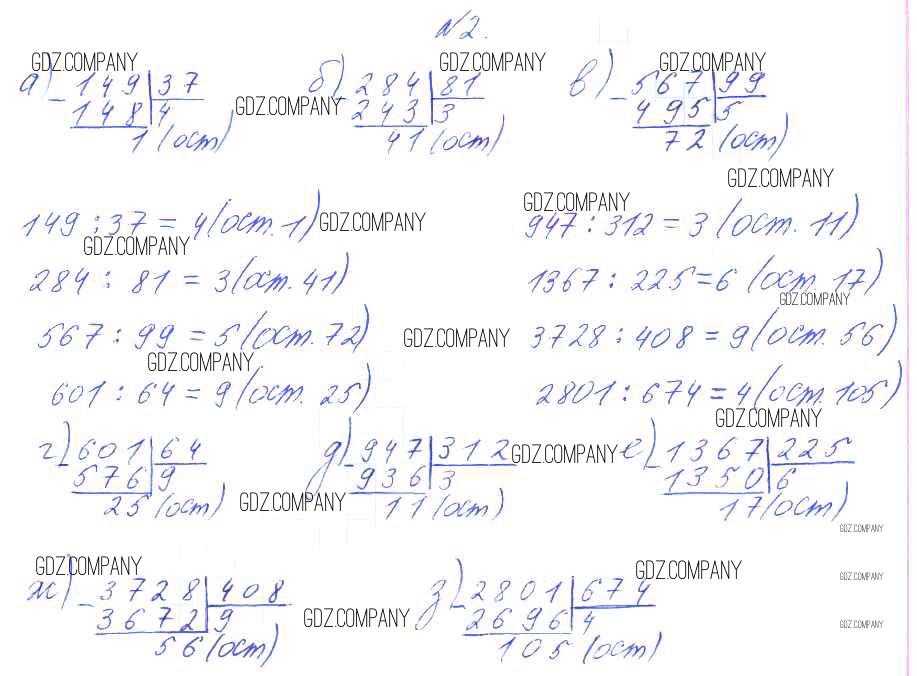 №2.
GDZ.COMPANY GDZ.COMPANY GDZ.COMPANY
а) - 149 | 37 б) - 284 | 81 в) - 567 | 99
GDZ.COMPANY
148 | 4 243 | 3 495 | 5
1 (ост) 41 (ост) 72 (ост)
GDZ.COMPANY
GDZ.COMPANY GDZ.COMPANY
149 : 37 = 4 (ост. 1) 947 : 312 = 3 (ост. 11)
GDZ.COMPANY
284 : 81 = 3 (ост. 41) 1367 : 225 = 6 (ост. 17)
GDZ.COMPANY
567 : 99 = 5 (ост. 72) GDZ.COMPANY 3728 : 408 = 9 (ост. 56)
GDZ.COMPANY
601 : 64 = 9 (ост. 25) 2801 : 674 = 4 (ост. 105)
GDZ.COMPANY
г) - 601 | 64 д) - 947 | 312 GDZ.COMPANY е) - 1367 | 225
576 | 9 936 | 3 1350 | 6
25 (ост) GDZ.COMPANY 11 (ост) 17 (ост)
GDZ.COMPANY
GDZ.COMPANY GDZ.COMPANY GDZ.COMPANY
ж) - 3728 | 408 з) - 2801 | 674
3672 | 9 GDZ.COMPANY 2696 | 4 GDZ.COMPANY
56 (ост) 105 (ост)